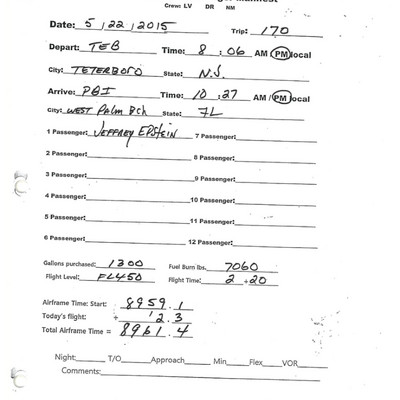 Crew: LV DR NM
Date: 5 / 22 / 2015 Trip: 170
Depart: TEB Time: 8 : 06 AM / PM local
City: TETERBORO State: N.J.
Arrive: PBI Time: 10 : 27 AM / PM local
City: WEST PALM BCH State: FL
1 Passenger: JEFFREY EPSTEIN 7 Passenger:
2 Passenger: 8 Passenger:
3 Passenger: 9 Passenger:
4 Passenger: 10 Passenger:
5 Passenger: 11 Passenger:
6 Passenger: 12 Passenger:
Gallons purchased: 1300 Fuel Burn lbs. 7060
Flight Level: FL450 Flight Time: 2 + 20
Airframe Time: Start: 8959.1
Today's flight: + 2.3
Total Airframe Time = 8961.4
Night: T/O Approach Min Flex VOR
Comments: